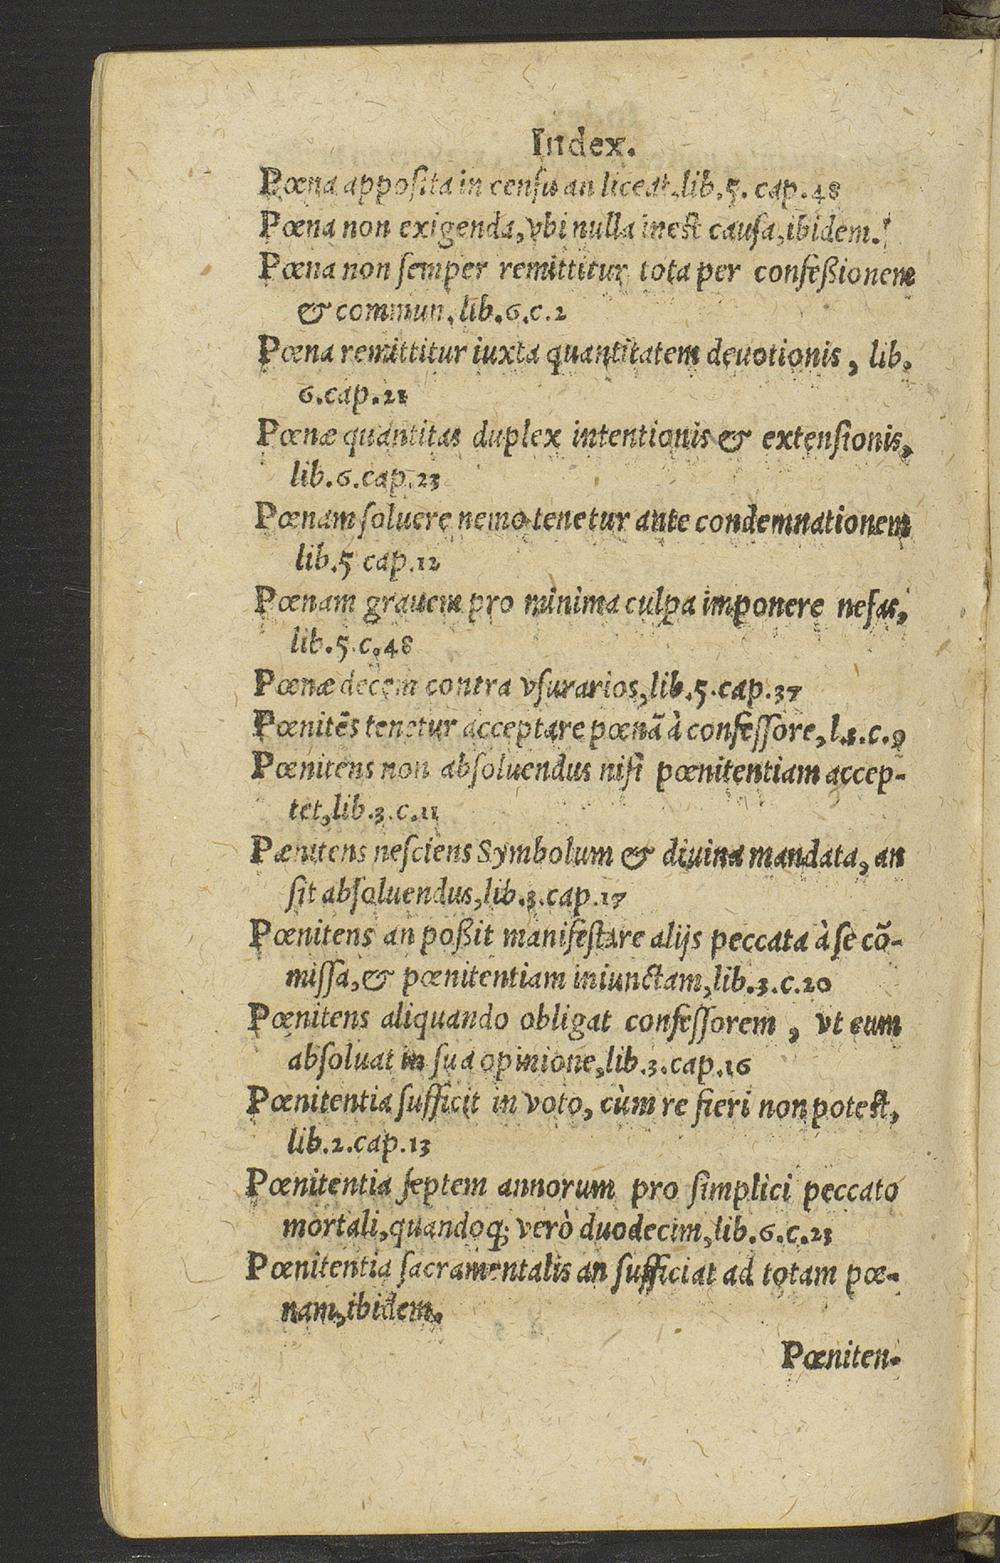 Index.
Pœna apposita in censu an liceat, lib. 5. cap. 48
Pœna non exigenda, vbi nulla inest causa, ibidem.
Pœna non semper remittitur tota per confeßionem
& commun. lib. 6. c. 2
Pœna remittitur iuxta quantitatem deuotionis, lib.
6. cap. 21
Pœnæ quantitas duplex intentionis & extensionis,
lib. 6. cap. 23
Pœnam soluere nemo tenetur ante condemnationem
lib. 5 cap. 12
Pœnam grauem pro minima culpa imponere nefas,
lib. 5. c. 48
Pœnæ decem contra vsurarios, lib. 5. cap. 37
Pœnitēs tenetur acceptare pœnā à confessore, l. . c. 9
Pœnitens non absoluendus nisi pœnitentiam accep-
tet, lib. 3. c. 11
Pænitens nesciens Symbolum & diuina mandata, an
sit absoluendus, lib. 3. cap. 17
Pœnitens an poßit manifestare alijs peccata à se cō-
missa, & pœnitentiam iniunctam, lib. 3. c. 20
Pœnitens aliquando obligat confessorem, vt eum
absoluat in sua opinione, lib. 3. cap. 16
Pœnitentia sufficit in voto, cùm re fieri non potest,
lib. 2. cap. 13
Pœnitentia septem annorum pro simplici peccato
mortali, quandoq; verò duodecim, lib. 6. c. 23
Pœnitentia sacramentalis an sufficiat ad totam pœ-
nam, ibidem.
Pœniten-